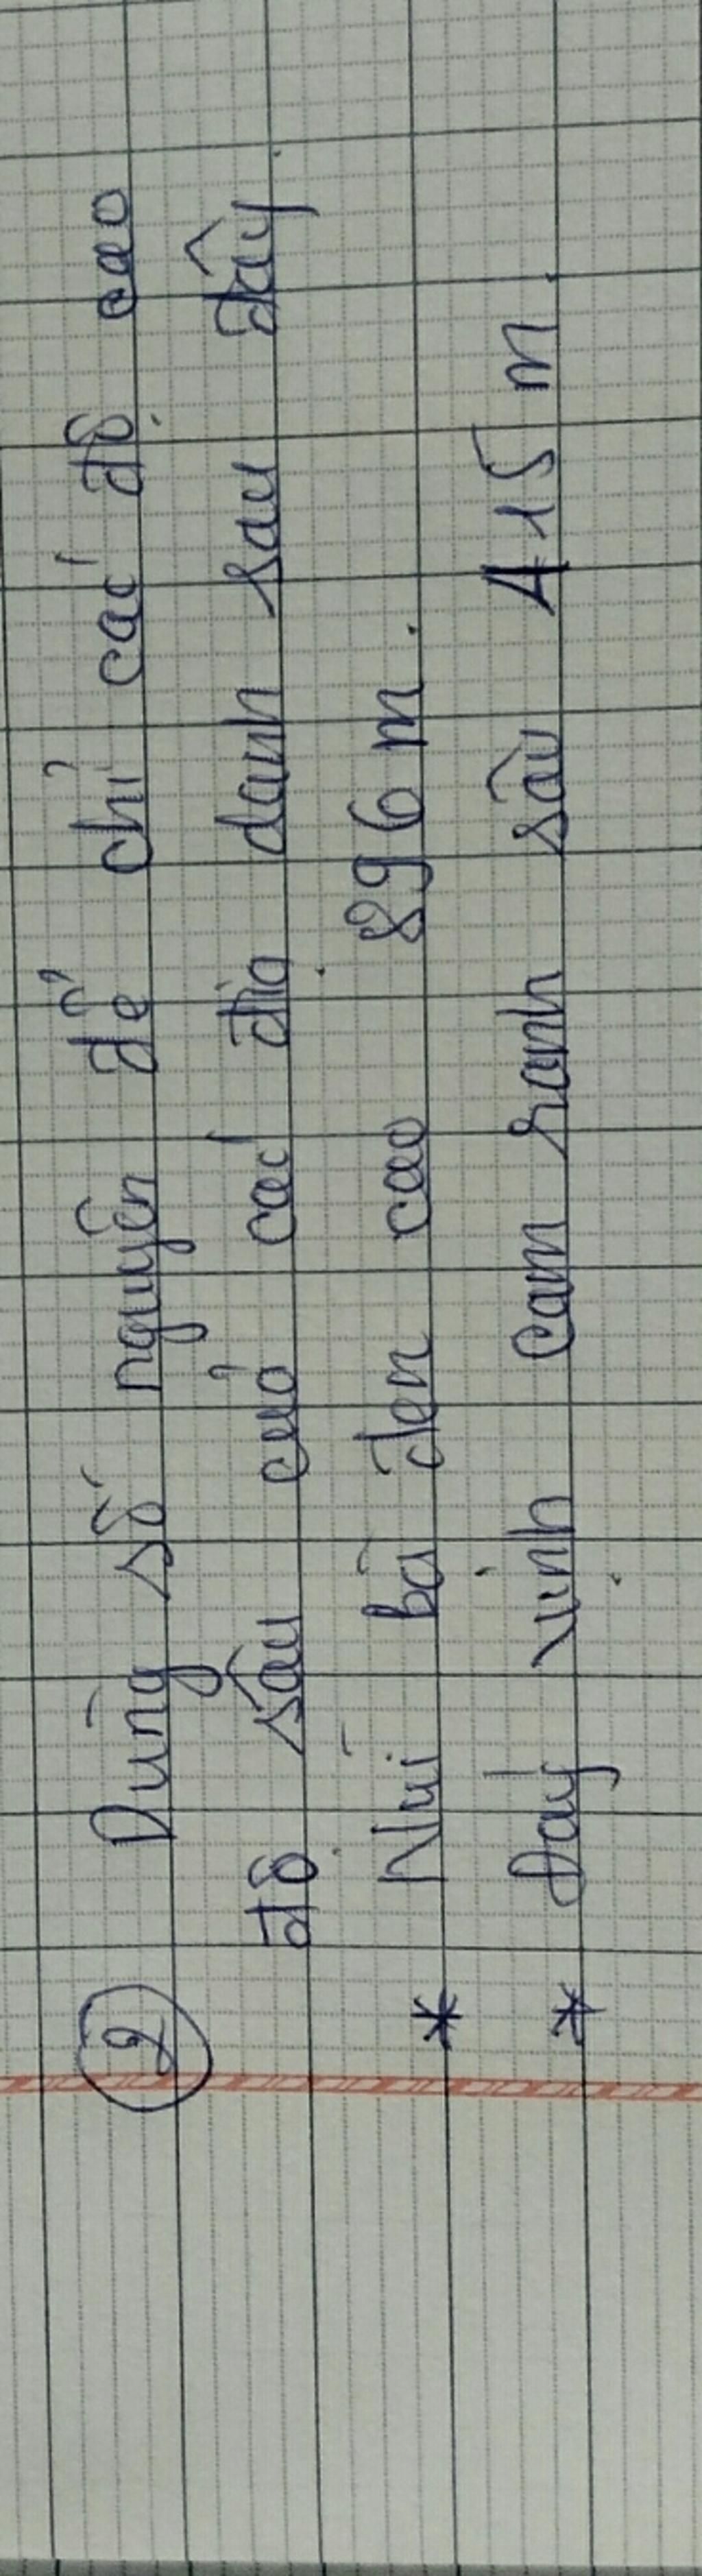 ② Dùng số nguyên để chỉ các độ cao
độ sâu của các địa danh sau đây.
* Núi bà đen cao 896 m.
* Đáy vịnh cam ranh sâu 115 m.